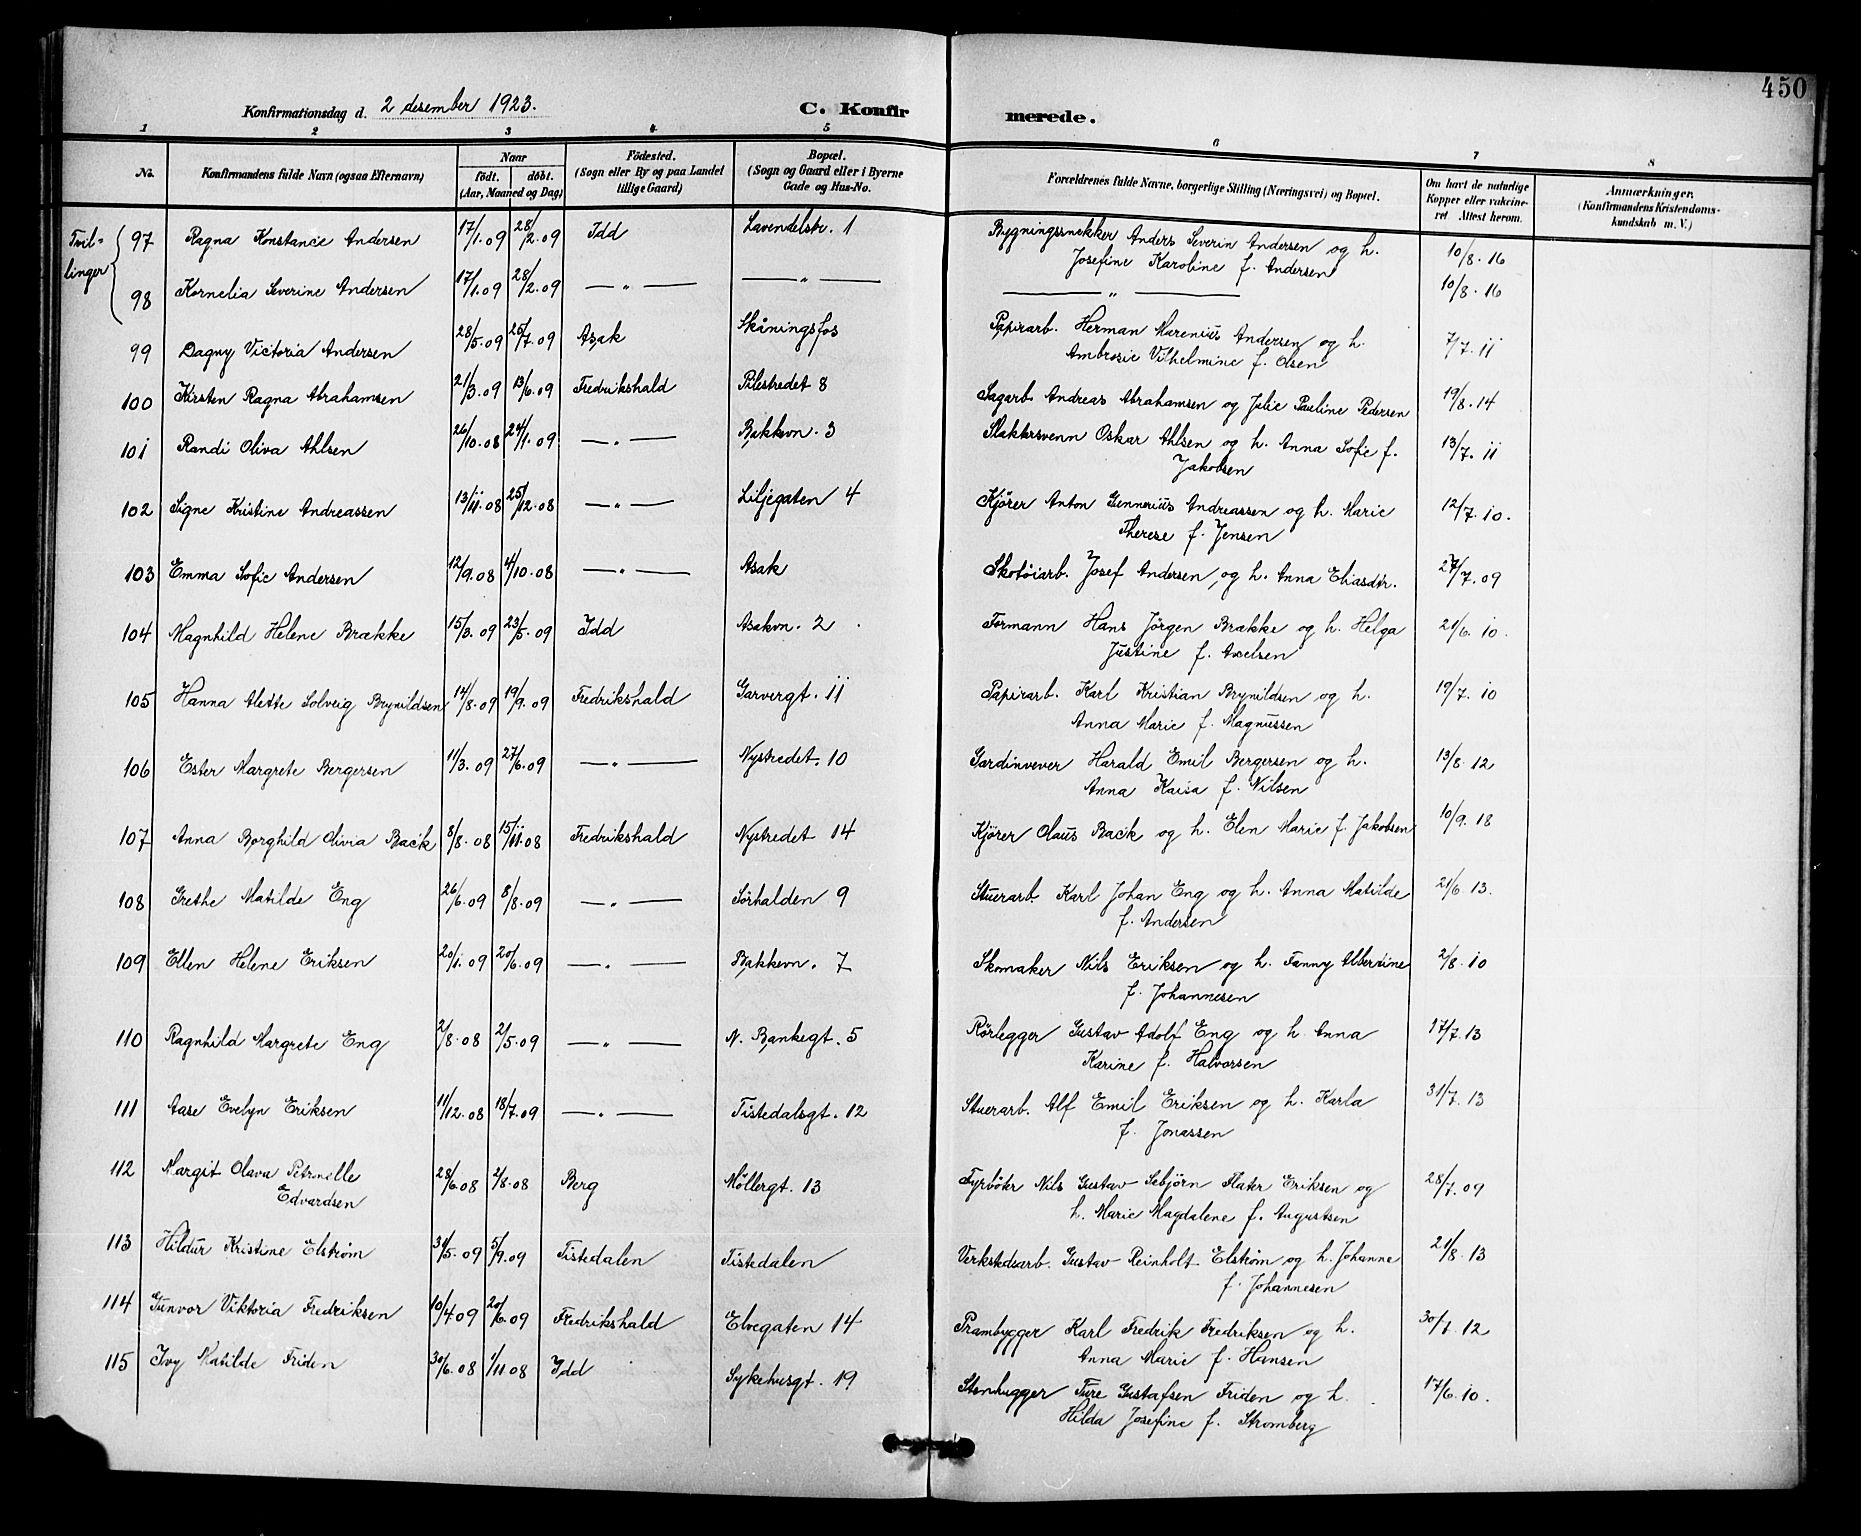 450
Konfirmationsdag d. 2 desember 1923.
C. Konfirmerede.
1 2 3 4 5 6 7 8
No. Konfirmandens fulde Navn (ogsaa Efternavn) Naar født. døbt. (Aar, Maaned og Dag) Fødested. (Sogn eller By og paa Landet tillige Gaard) Bopæl. (Sogn og Gaard eller i Byerne Gade og Hus-No. Forældrenes fulde Navne, borgerlige Stilling (Næringsvei) og Bopæl. Om havt de naturlige Kopper eller vakcineret. Attest herom. Anmærkninger. (Konfirmandens Kristendomskundskab m. V.)
Tvillinger
97 Ragna Konstance Andersen 17/1.09 28/2.09 Idd Lavendelstr. 1 Bygningssnekker Anders Severin Andersen og h. 10/8.16
Josefine Karoline f. Andersen
98 Kornelia Severine Andersen 17/1.09 28/2.09 — " — — " — — " — 10/8.16
99 Dagny Victoria Andersen 28/5.09 25/7.09 Asak Skåningsfos Papirarb. Herman Marenius Andersen og h. 7/7.11
Ambrosie Vilhelmine f. Olsen
100 Kirsten Ragna Abrahamsen 21/3.09 13/6.09 Fredrikshald Pilestredet 8 Sagarb. Andreas Abrahamsen og Julie Pauline Pedersen 19/8.14
101 Randi Oliva Ahlsen 26/10.08 24/1.09 — " — Bakkevn. 3 Slaktersvenn Oskar Ahlsen og h. Anna Sofie f. 13/7.11
Jakobsen
102 Signe Kristine Andreassen 13/11.08 25/12.08 — " — Liljegaten 4 Kjörer Anton Gunnerius Andreassen og h. Marie 12/7.10.
Therese f. Jensen
103 Emma Sofie Andersen 12/9.08 4/10.08 — " — Asak Skotöiarb. Josef Andersen og h. Anna Eliasdtr. 27/7.09
104 Magnhild Helene Brække 15/3.09 23/5.09 Idd Asakvn. 2 Formann Hans Jörgen Brække og h. Helga 21/6.10.
Justine f. Axelsen
105 Hanna Alette Solveig Brynildsen 14/8.09 19/9.09 Fredrikshald Garvergt. 11 Papirarb. Karl Kristian Brynildsen og h. 19/7.10
Anna Marie f. Magnussen
106 Ester Margrete Bergersen 11/3.09 27/6.09 — " — Nystredet. 10 Gardinvever Harald Emil Bergersen og h. 13/8.12
Anna Kaisa f. Nilsen
107 Anna Borghild Olivia Back 8/8.08 15/11.08 Fredrikshald Nystredet 14 Kjörer Olaus Back og h. Elen Marie f. Jakobsen 10/9.18
108 Grethe Matilde Eng 26/6.09 8/8.09 — " — Sörhalden 9 Stuerarb. Karl Johan Eng og h. Anna Matilde 21/6.13.
f. Andersen
109 Ellen Helene Eriksen 20/1.09 20/6.09 — " — Bakkevn. 7 Skomaker Nils Eriksen og h. Fanny Albertine 2/8.10
f. Johannesen
110 Ragnhild Margrete Eng 2/8.08 2/5.09 — " — N. Bankegt. 5 Rörlegger Gustav Adolf Eng og h. Anna 17/7.13
Karine f. Halvorsen
111 Aase Evelyn Eriksen 11/12.08 18/7.09 — " — Tistedalsgt. 12 Stuerarb. Alf Emil Eriksen og h. Karla 31/7.13
f. Jonassen
112 Margit Olava Petrnelle 28/6.08 2/8.08 Berg Möllergt. 13 Fyrböter Nils Gustav Sebjörn Flater Eriksen og 28/7.09
Edvardsen h. Marie Magdalene f. Augustsen
113 Hildur Kristine Elstrøm 31/5.09 5/9.09 Tistedalen Tistedalen Verkstedsarb. Gustav Reinholt Elstrøm og h. Johanne 21/8.13
f. Johannesen
114 Gunvor Viktoria Fredriksen 10/4.09 20/6.09 Fredrikshald Elvegaten 14 Prambygger Karl Fredrik Fredriksen og h. 30/7.12
Anna Marie f. Hansen
115 Ivy Matilde Friden 30/6.08 1/11.08 Idd Sykehusgt. 19 Stenhugger Ture Gustafsen Friden og h. 17/6.10.
Hilda Josefine f. Stromberg